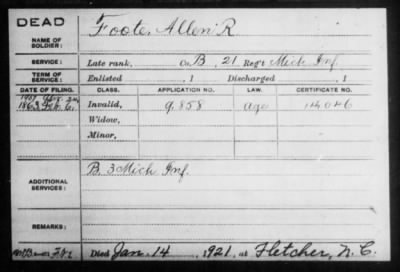 DEAD
NAME OF SOLDIER:
Foote, Allen R.
SERVICE:
Late rank, Co. B, 21 Reg't Mich Inf.
TERM OF SERVICE:
Enlisted , 1 Discharged , 1
DATE OF FILING. CLASS. APPLICATION NO. LAW. CERTIFICATE NO.
1907
1863 Feb. 6. Invalid, 9.858 age 14046
Widow,
Minor,
ADDITIONAL SERVICES:
B. 3 Mich Inf.
REMARKS:
Died Jan. 14, 1921, at Fletcher, N.C.